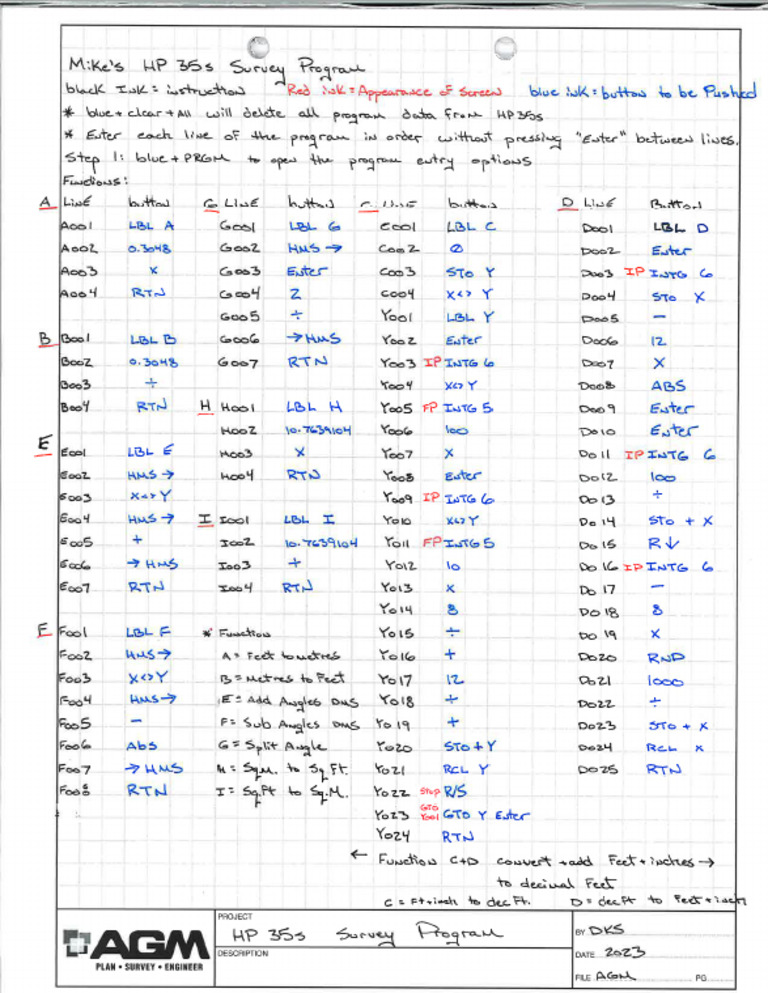 Mike's HP 35s Survey Program
black Ink = instruction Red ink = Appearance of Screen blue ink = button to be Pushed
* blue + clear + All will delete all program data from HP35s
* Enter each line of the program in order without pressing "Enter" between lines.
Step 1: blue + PRGM to open the program entry options
Functions:
A LINE button G LINE button C LINE button D LINE Button
A001 LBL A G001 LBL G C001 LBL C D001 LBL D
A002 0.3048 G002 HMS → C002 0 D002 Enter
A003 x G003 Enter C003 STO Y D003 IP INTG 6
A004 RTN G004 2 C004 X<>Y D004 STO X
G005 ÷ Y001 LBL Y D005 -
B B001 LBL B G006 → HMS Y002 Enter D006 12
B002 0.3048 G007 RTN Y003 IP INTG 6 D007 X
B003 ÷ Y004 X<>Y D008 ABS
B004 RTN H H001 LBL H Y005 FP INTG 5 D009 Enter
H002 10.7639104 Y006 100 D010 Enter
E E001 LBL E H003 X Y007 X D011 IP INTG 6
E002 HMS → H004 RTN Y008 Enter D012 100
E003 X<>Y Y009 IP INTG 6 D013 ÷
E004 HMS → I I001 LBL I Y010 X<>Y D014 STO + X
E005 + I002 10.7639104 Y011 FP INTG 5 D015 R↓
E006 → HMS I003 ÷ Y012 10 D016 IP INTG 6
E007 RTN I004 RTN Y013 x D017 -
Y014 8 D018 8
F F001 LBL F * Function Y015 ÷ D019 X
F002 HMS → A = Feet to metres Y016 + D020 RND
F003 X<>Y B = Metres to Feet Y017 12 D021 1000
F004 HMS → E = Add Angles DMS Y018 ÷ D022 ÷
F005 - F = Sub Angles DMS Y019 + D023 STO + X
F006 Abs G = Split Angle Y020 STO + Y D024 RCL X
F007 → HMS H = Sq.M. to Sq Ft. Y021 RCL Y D025 RTN
F008 RTN I = Sq.Ft to Sq.M. Y022 Stop R/S
Y023 GTO Y001 GTO Y Enter
Y024 RTN
← Function C+D convert + add Feet + inches →
to decimal Feet
C = Ft+inch to dec Ft. D = dec Ft to Feet + inch
AGM
PLAN • SURVEY • ENGINEER
PROJECT
HP 35s Survey Program
DESCRIPTION
BY DKS
DATE 2023
FILE AGM PG